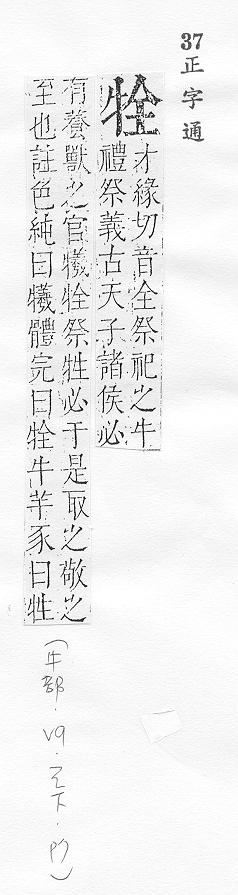 37 正字通
牷
才緣切音全祭祀之牛
禮祭義古天子諸侯必
有養獸之官犧牷祭牲必于是取之敬之
至也註色純曰犧體完曰牷牛羊豕曰牲
(牛部.